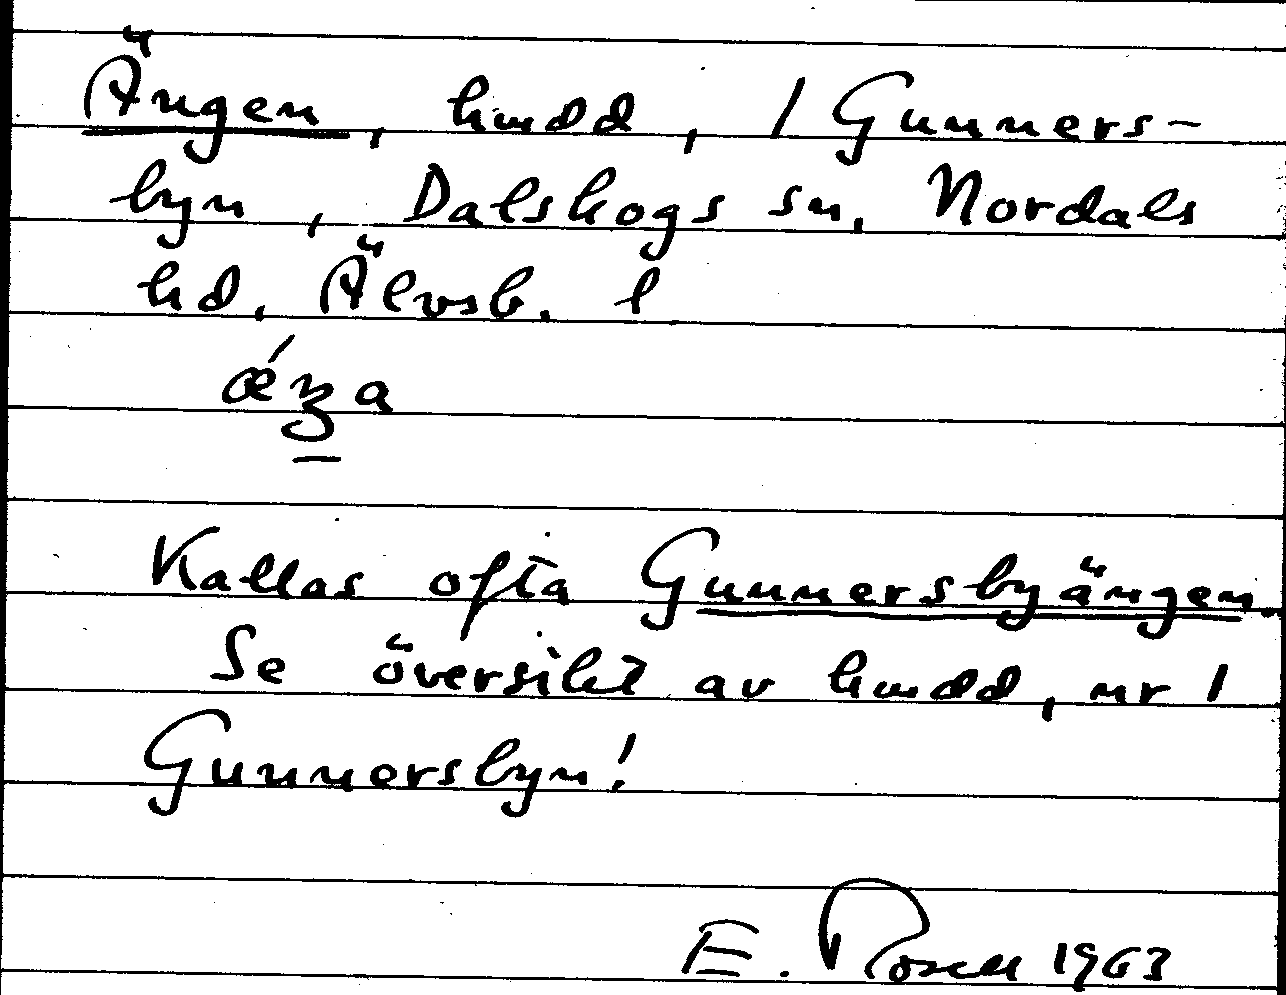 Ängen, hmdd, 1 Gunners-
byn, Dalskogs sn, Nordals
hd, Älvsb. l
Kallas ofta Gunnersbyängen.
Se översikt av hmdd, nr 1
Gunnersbyn!
E. Rosell 1963